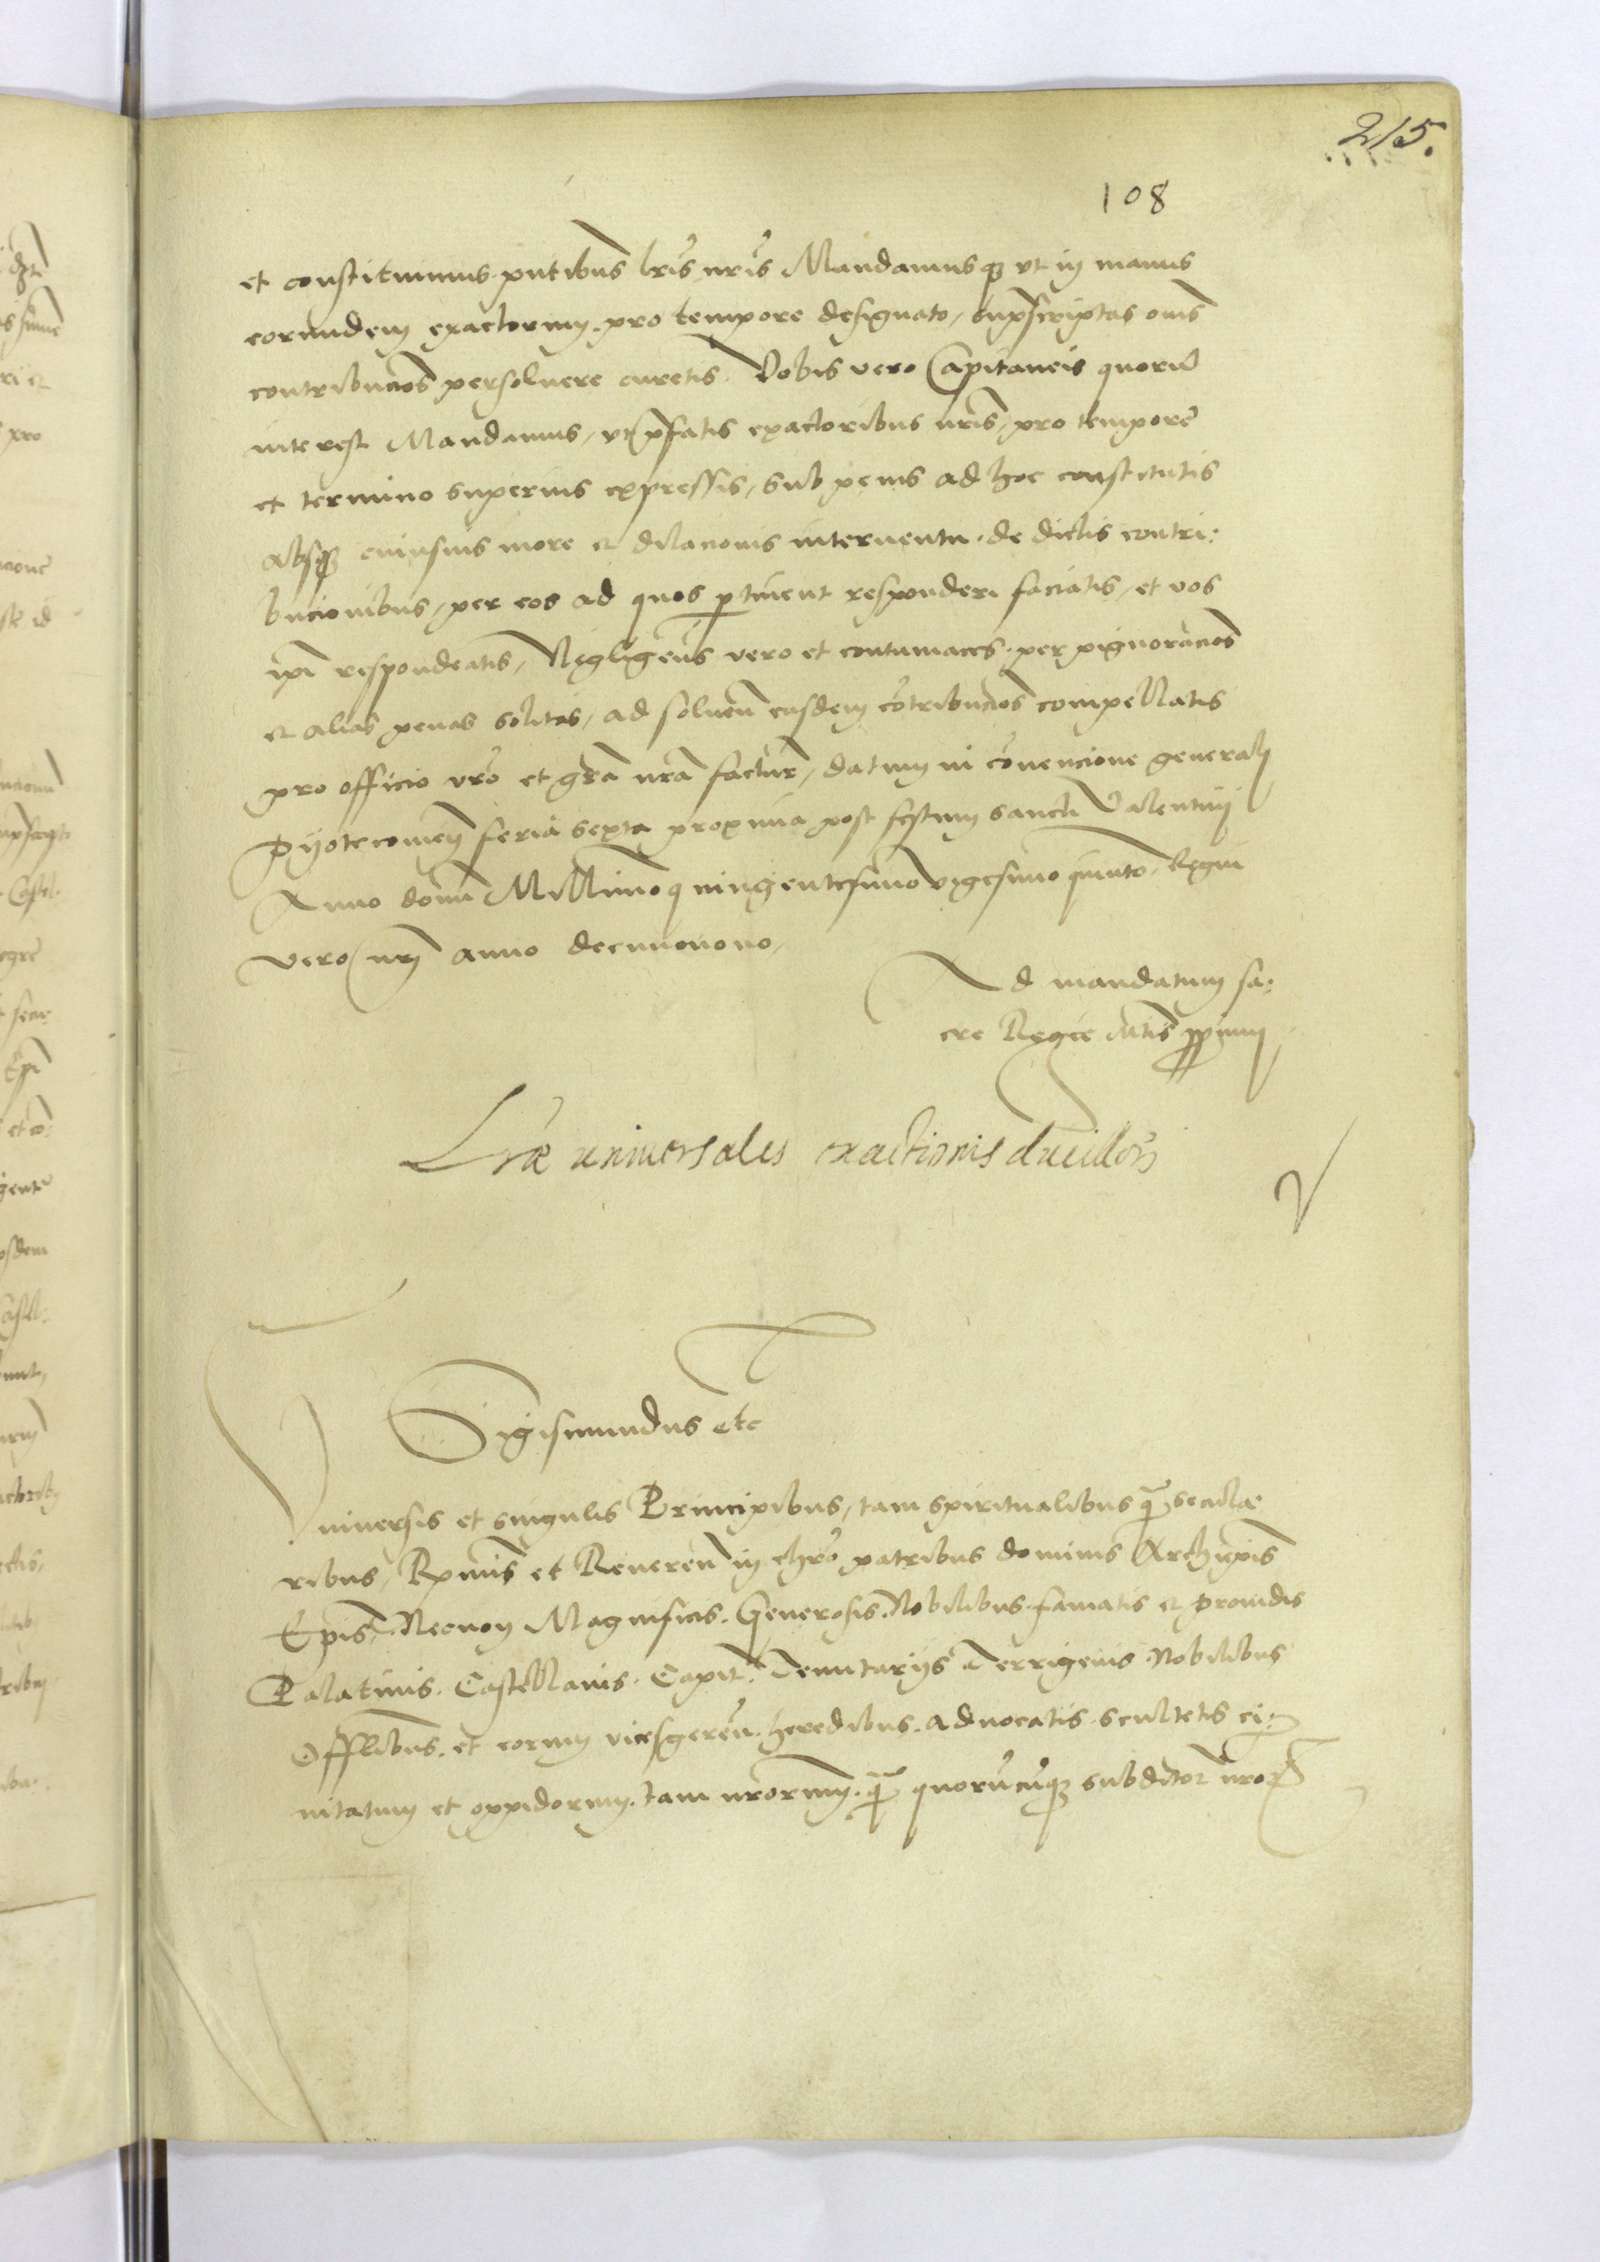 215.
108
et constituimus pntibus lris nris Mandamusq3 vt in manus
eorundem exactorum pro tempore designato, suprascriptas oms
contribucios persoluere curetis. Vobis vero Capitaneis quoru
interest Mandamus, vt pfatis exactoribus nris, pro tempore
et termino superius expressis, sub penis ad hoc constitutis
absq3 cuiusuis more et dilacionis interuentu. de dictis contri:
bucionibus, per eos ad quos ptinent responderi faciatis, et vos
ipi respondeatis, Negligens vero et contumaces. per pignoracios
et alias penas solitas, ad soluen easdem cotribucios compellatis
pro officio vro et gra nra factur, datum in couencione generali
Pyotrcouien feria sexta proxima post festum sancti Valentini
Anno domi Millimoquingentesimo vigesimo quinto, Regni
vero nri anno decimonono,
Ad mandatum sa:
cre Regie Mtis ppium
Lræ universales exactionis ducillor
Sigismundus etc
Vniuersis et singulis Principibus, tam spiritualibus q3 secula
ribus, Rxmis et Reueren in chro patribus dominis Archiepis
Epis, Necnon Magnificis. Generosis. Nobilibus. famatis et prouidis
Palatinis. Castellanis. Capit. Tenutariis Terrigenis Nobilibus
Offlibus. et eorum vicesgeren. heredibus. aduocatis. scultetis ci:
uitatum et oppidorum. tam nrorum. q3 quorucuq3 subditor nror